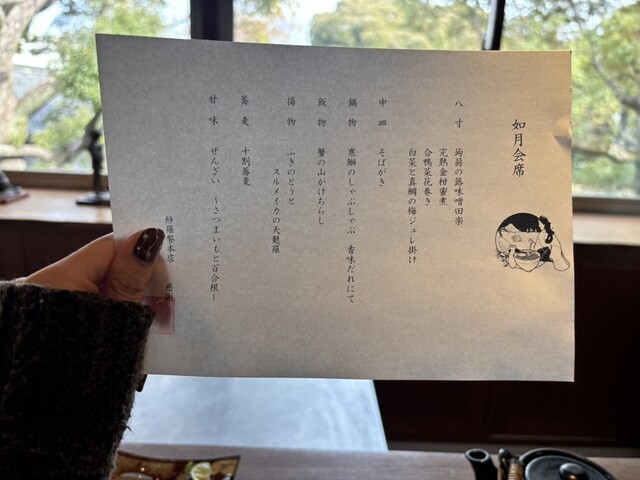 如月会席
八寸 蒟蒻の蕗味噌田楽
完熟金柑蜜煮
合鴨菜花巻き
白菜と真鯛の梅ジュレ掛け
中皿 そばがき
鍋物 寒鰤のしゃぶしゃぶ 香味だれにて
飯物 蟹の山かけちらし
揚物 ふきのとうと
スルメイカの天麩羅
蕎麦 十割蕎麦
甘味 ぜんざい ～さつまいもと百合根～
紗羅餐本店 感謝